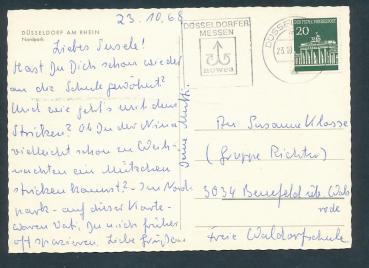 23.10.68
DÜSSELDORF AM RHEIN
Nordpark
Liebes Susele!
Hast Du Dich schon wieder
an die Schule gewöhnt?
Und wie geht's mit dem
Stricken? Ob Du der Nina
vielleicht schon zu Weih-
nachten ein Mützchen
stricken kannst? - Im Nord-
park - auf dieser Karte -
waren Vati, Du u. ich früher
oft spazieren. Liebe Grüße
Deine Mutti
DÜSSELDORFER
MESSEN
NOWEA
DÜSSEL
23.10
DEUTSCHE BUNDESPOST
20
An Susanne Klasse
(Gruppe Richter)
3034 Benefeld üb. Wals
rode
Freie Waldorfschule